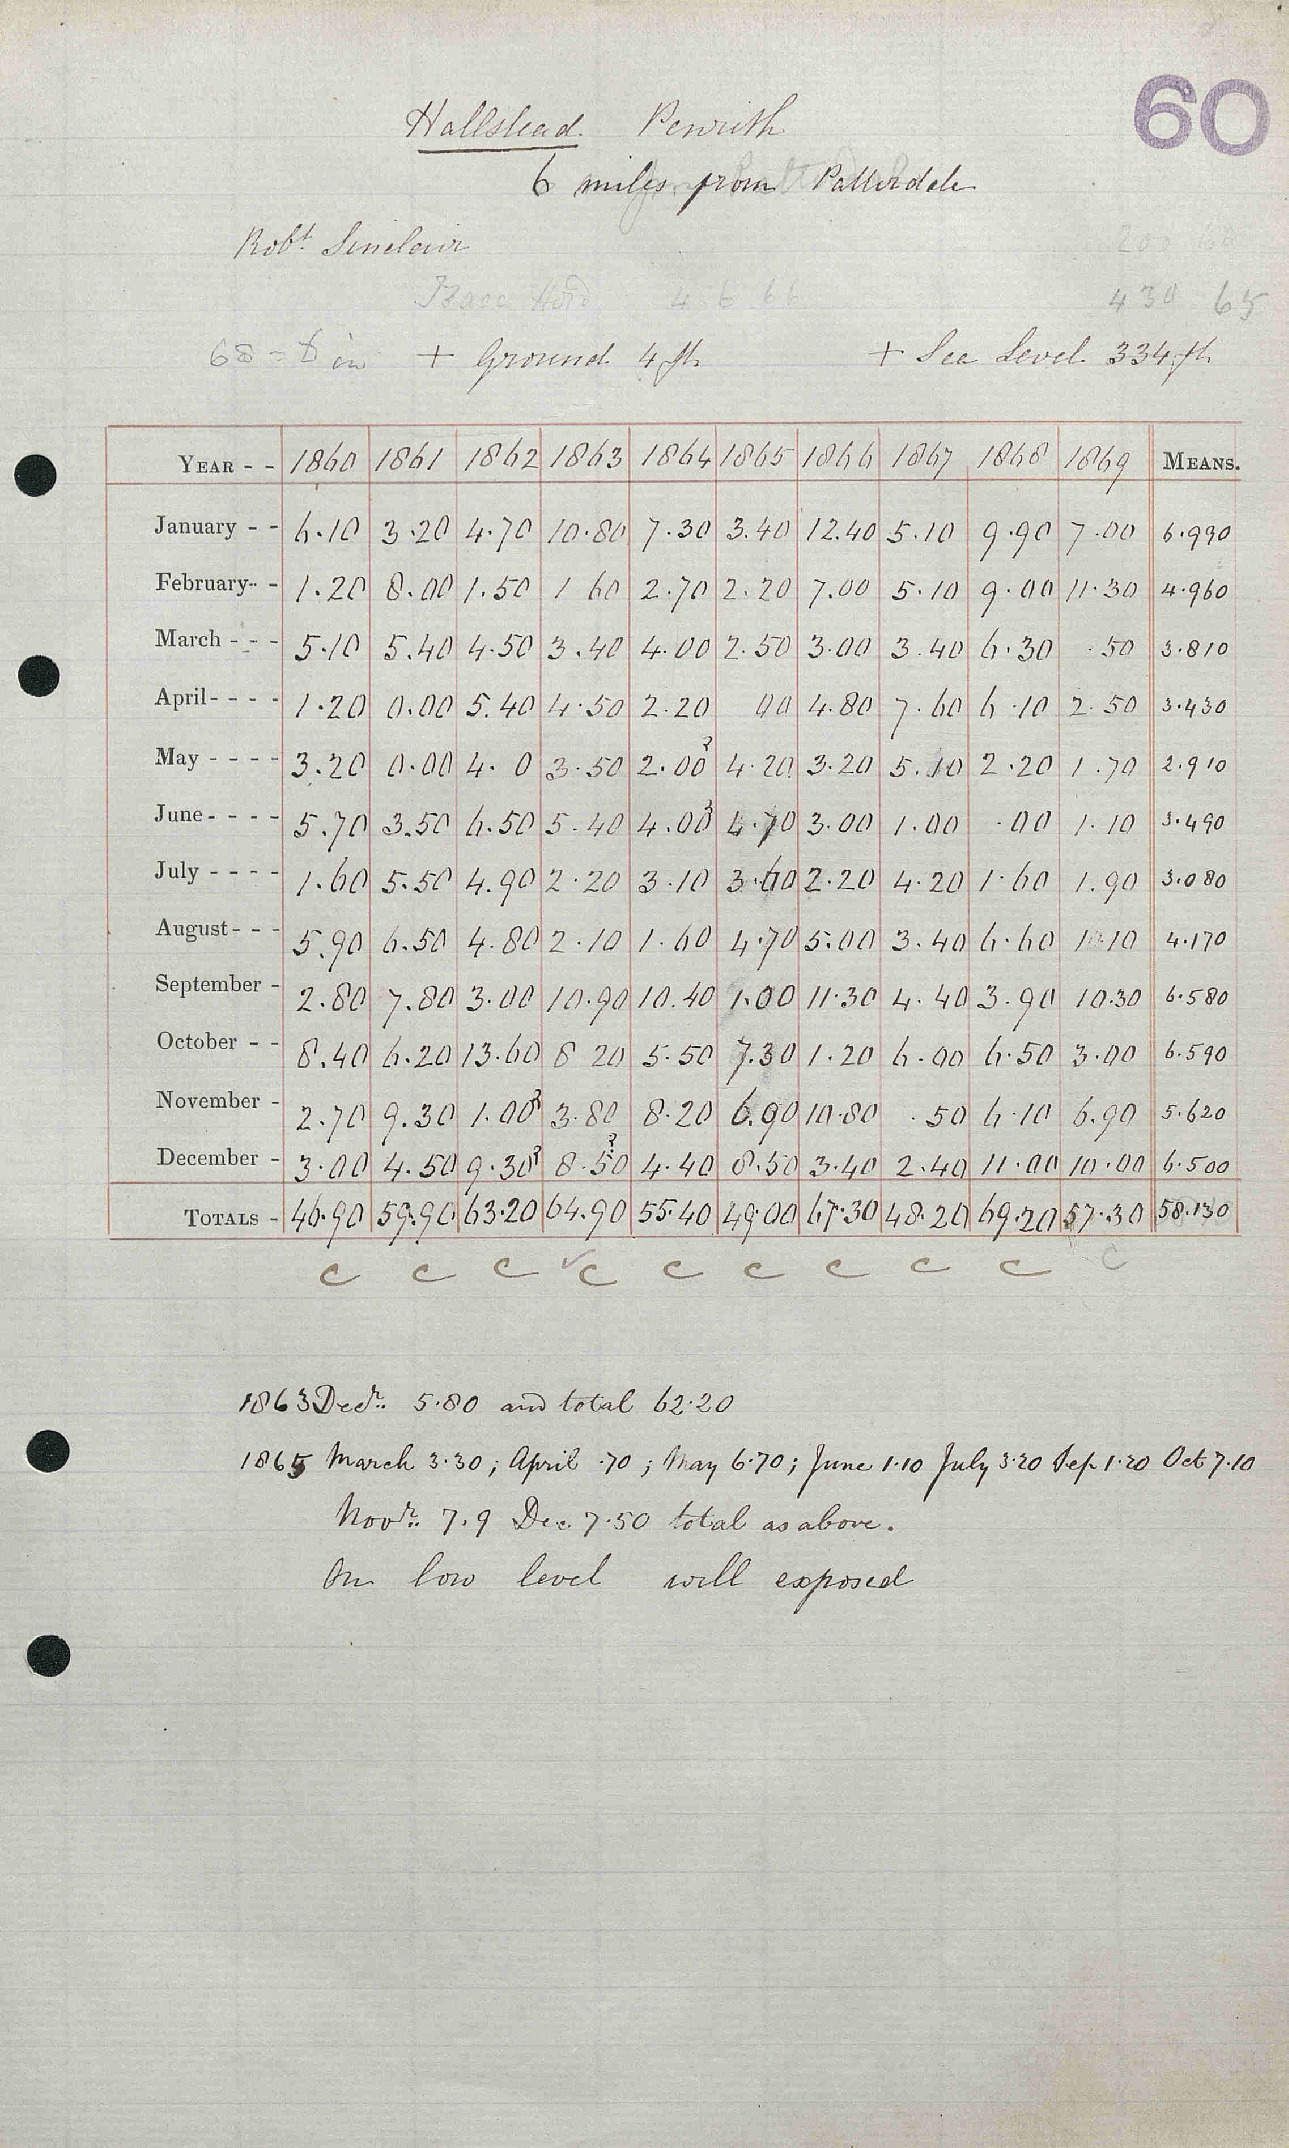 60
Hallstead Penrith
6 miles from Patterdale
Robt Sinclair
200 60
4 6 66 430 65
68 = 8 in + Ground 4 ft + Sea Level 334 ft
YEAR - - 1860 1861 1862 1863 1864 1865 1866 1867 1868 1869 MEANS.
January - - 6.10 3.20 4.70 10.80 7.30 3.40 12.40 5.10 9.90 7.00 6.990
February - - 1.20 8.00 1.50 1 60 2.70 2.20 7.00 5.10 9.00 11.30 4.960
March - - - 5.10 5.40 4.50 3.40 4.00 2.50 3.00 3.40 6.30 .50 3.810
April - - - - 1.20 0.00 5.40 4.50 2.20 00 4.80 7.60 6.10 2.50 3.430
May - - - - 3.20 0.00 4. 0 3.50 2.00? 4.20 3.20 5.10 2.20 1.70 2.910
June - - - - 5.70 3.50 6.50 5.40 4.00? 4.70 3.00 1.00 .00 1.10 3.490
July - - - - 1.60 5.50 4.90 2.20 3.10 3.60 2.20 4.20 1.60 1.90 3.080
August - - - 5.90 6.50 4.80 2.10 1.60 4.70 5.00 3.40 6.60 1.10 4.170
September - 2.80 7.80 3.00 10.90 10.40 1.00 11.30 4.40 3.90 10.30 6.580
October - - 8.40 6.20 13.60 8 20 5.50 7.30 1.20 6.00 6.50 3.00 6.590
November - 2.70 9.30 1.00? 3.80 8.20 6.90 10.80 .50 6.10 6.90 5.620
December - 3.00 4.50 9.30? 8.50? 4.40 8.50 3.40 2.40 11.00 10.00 6.500
TOTALS - 46.90 59.90 63.20 64.90 55.40 49.00 67.30 48.20 69.20 57.30 58.130
c c c ✓c c c c c c c
1863 Decr. 5.80 and total 62.20
1865 March 3.30; April .70; May 6.70; June 1.10 July 3.20 Sep 1.20 Oct 7.10
Novr. 7.9 Dec. 7.50 total as above.
On low level well exposed